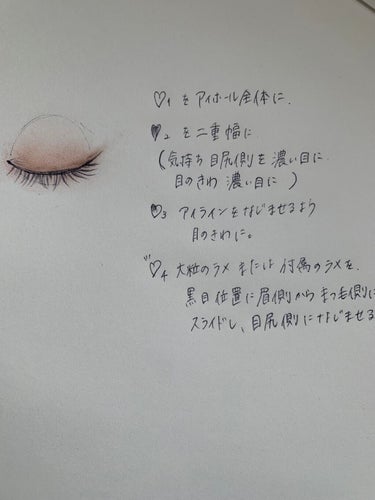 ♡1 を アイホール全体に.
♥2 を 二重幅に
(気持ち 目尻側を 濃い目に.
目のきわ 濃い目に )
♥3 アイラインをなじませるよう
目のきわに。
♡4 大粒のラメ または 付属のラメを.
黒目位置に眉側からまつ毛側に
スライドし、目尻側になじませる